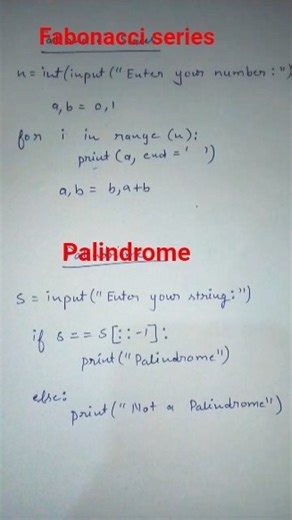 Fabonacci series
n = int(input("Enter your number:"))
a,b = 0,1
for i in range (n):
print (a, end = ' ')
a,b = b,a+b
Palindrome
S = input("Enter your string:")
if s == s[::-1]:
print("Palindrome")
else:
print("Not a Palindrome")